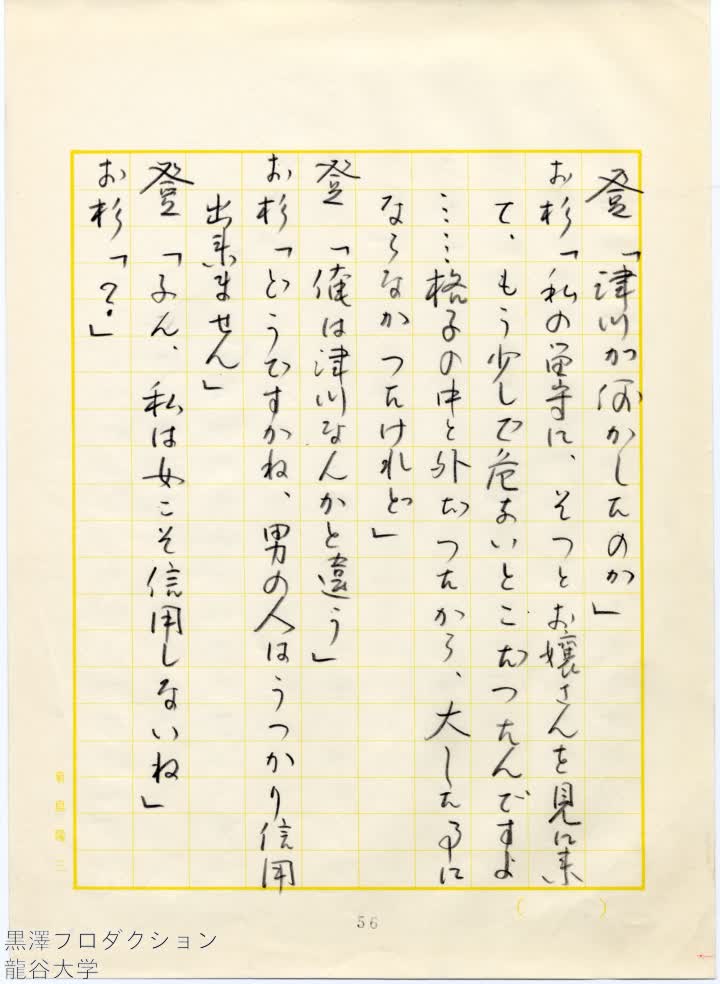 登「津川が何かしたのか」
お杉「私の留守に、そつとお嬢さんを見に来
て、もう少しで危ないとこだつたんですよ
……格子の中と外だつたから、大した事に
ならなかつたけれど」
登「俺は津川なんかと違う」
お杉「どうですかね、男の人はうつかり信用
出来ません」
登「ふん、私は女こそ信用しないね」
お杉「？」
( )
56
黒澤プロダクション
龍谷大学